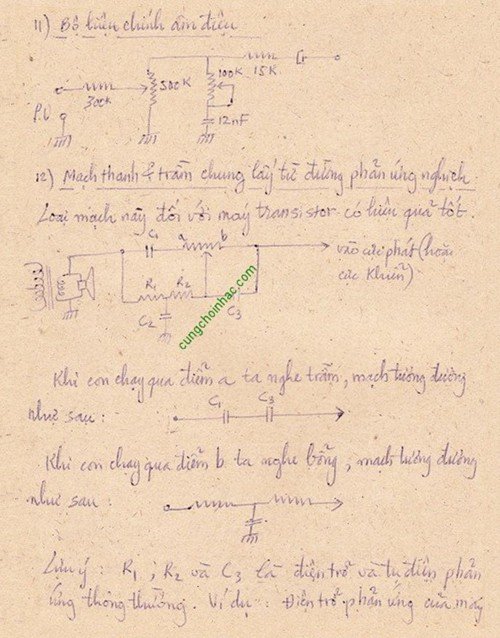 11) Bộ hiệu chỉnh âm điệu
100K
500K
15K
300K
P.U
12nF
12) Mạch thanh & trầm chung lấy từ đường phản ứng nghịch.
Loại mạch này đối với máy transistor có hiệu quả tốt.
C1 a b
vào cực phát (hoặc
cực Khiển)
R1 R2
C2 C3
cungchoinhac.com
Khi con chạy qua điểm a ta nghe trầm, mạch tương đương
như sau:
C1 C3
Khi con chạy qua điểm b ta nghe bổng, mạch tương đương
như sau:
Lưu ý: R1, R2 và C3 là điện trở và tụ điện phản
ứng thông thường. Ví dụ: Điện trở phản ứng của máy